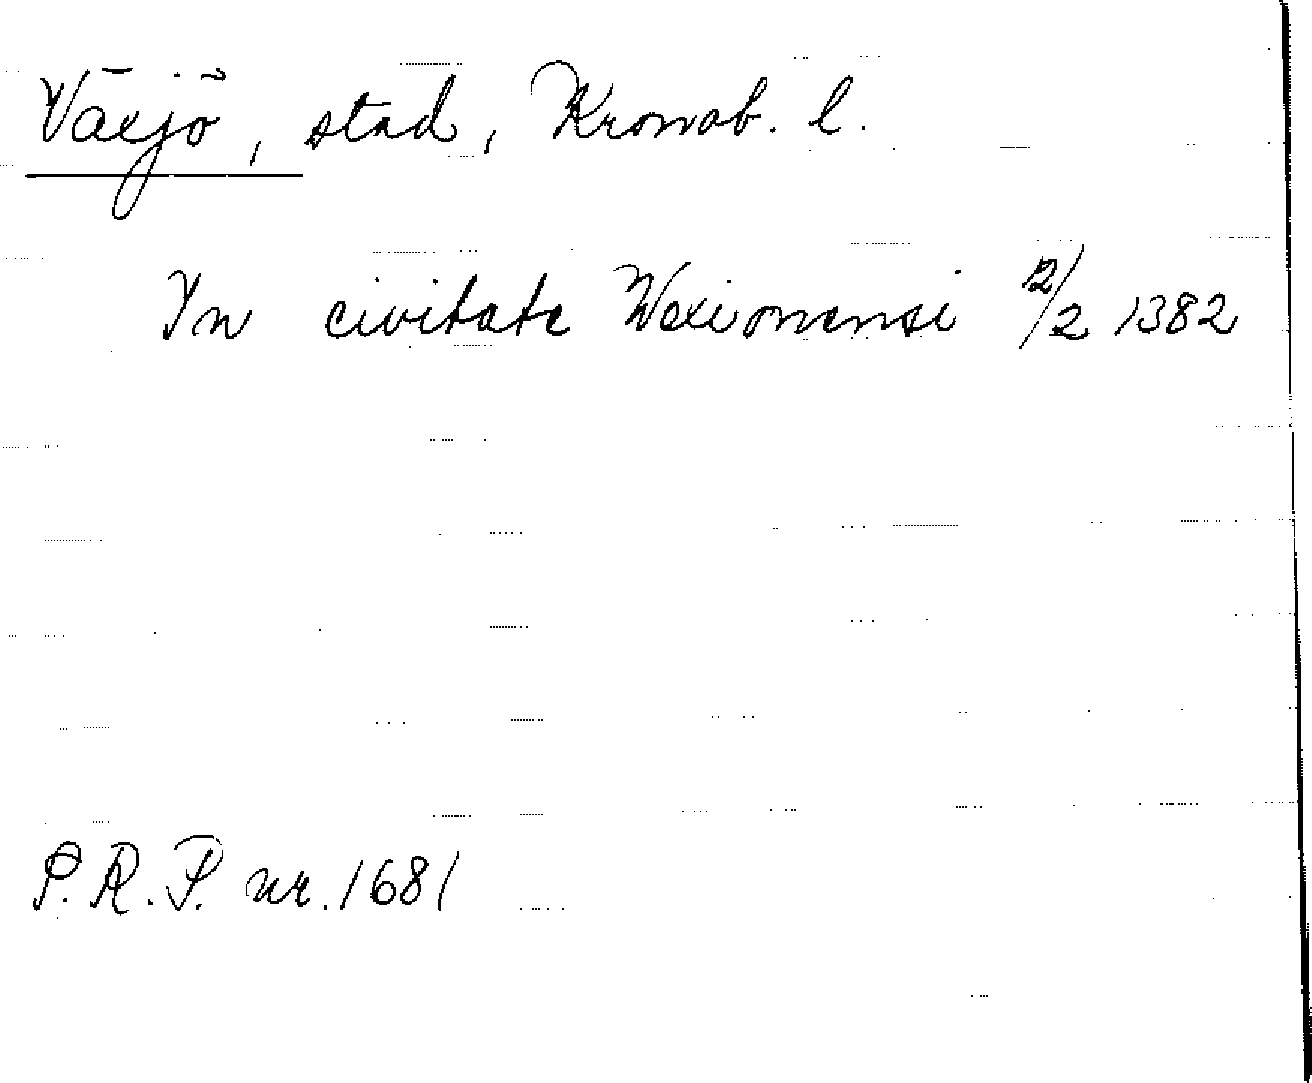 Växjö, stad, Kronob. l.
In civitate Wexionensi 2/2 1382
P.R.P. nr. 1681